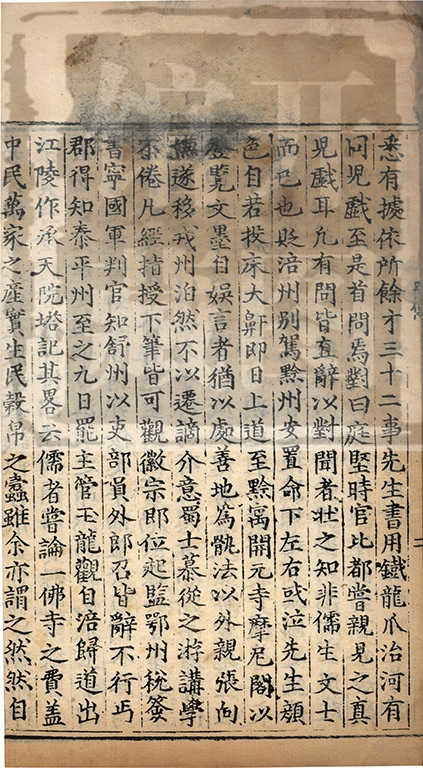 悉有據依所餘才三十二事先生書用鐵龍爪治河有
同兒戲至是首問焉對曰庭堅時官北都嘗親見之真
兒戲耳凢有問皆直辭以對聞者壯之知非儒生文士
而已也貶涪州別駕黔州安置命下左右或泣先生顔
色自若投床大鼾即日上道至黔寓開元寺摩尼閣以
登覽文墨自娛言者猶以處善地爲骫法以外親張向
嫌遂移戎州泊然不以遷謫介意蜀士慕從之游講學
不倦凡經指授下筆皆可觀徽宗即位起監鄂州稅簽
書寧國軍判官知舒州以吏部員外郎召皆辭不行丐
郡得知泰平州至之九日罷主管玉龍觀自涪歸道出
江陵作承天院塔記其畧云儒者嘗論一佛寺之費盖
中民萬家之産實生民穀帛之蠹雖余亦謂之然然自